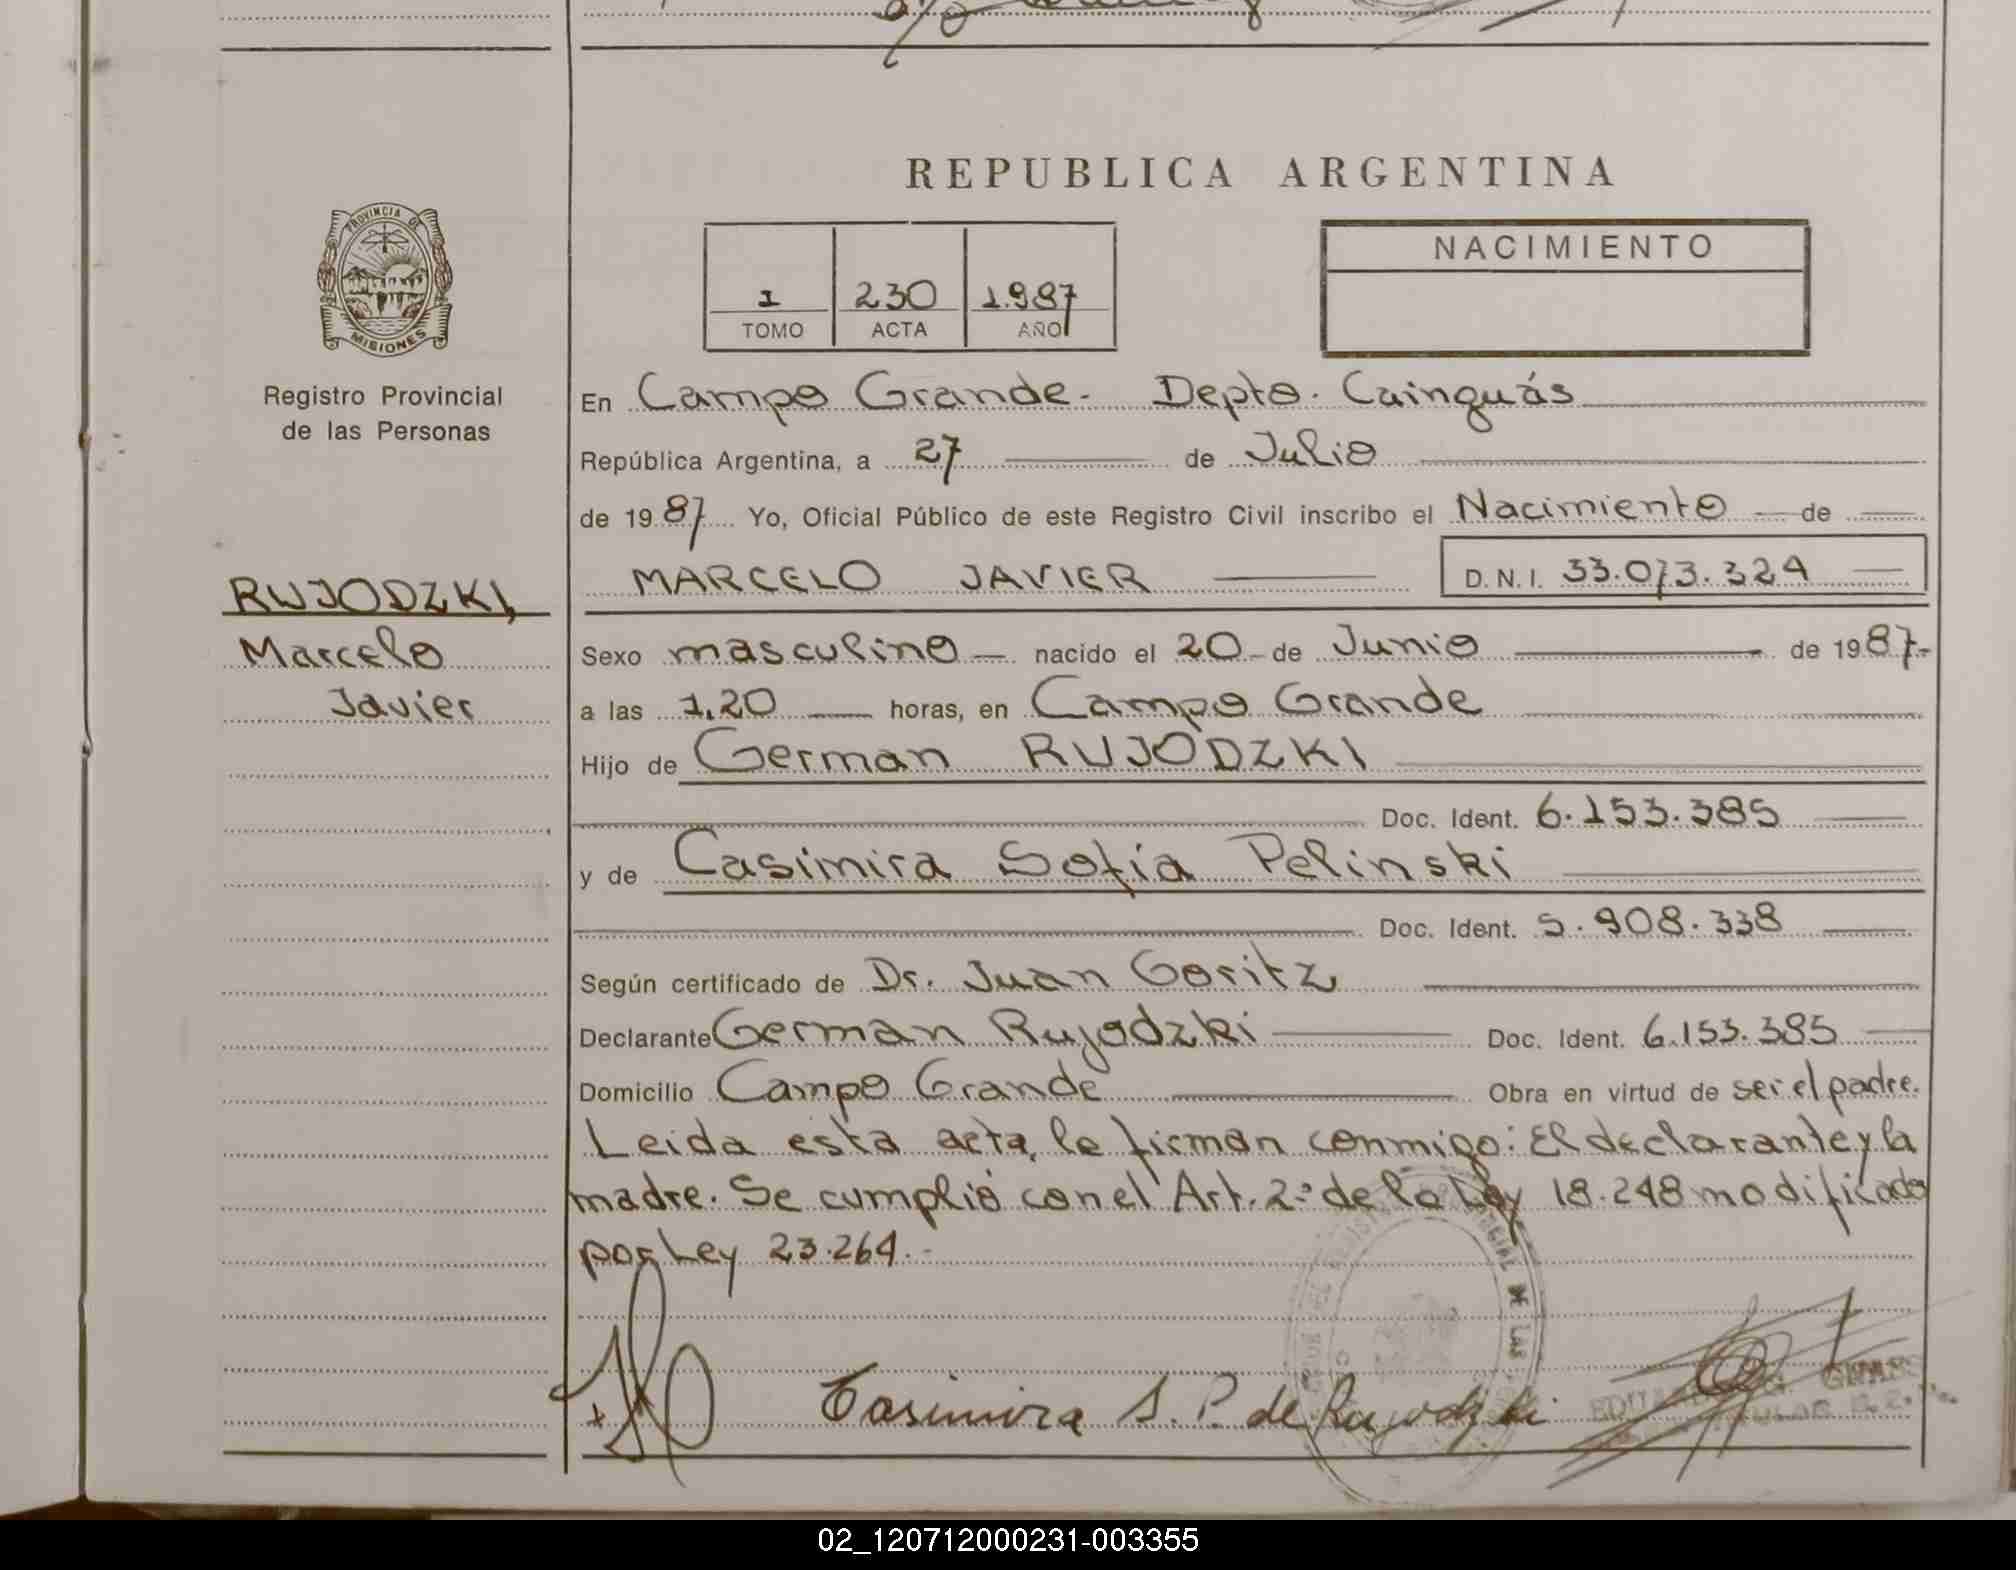 REPUBLICA ARGENTINA
PROVINCIA DE
MISIONES
Registro Provincial
de las Personas
RUJODZKI,
Marcelo
Javier
1 230 1.987
TOMO ACTA AÑO
NACIMIENTO
En Campo Grande - Depto. Cainguás
República Argentina, a 27 de Julio
de 1987 Yo, Oficial Público de este Registro Civil inscribo el Nacimiento de
MARCELO JAVIER D.N.I. 33.073.324
Sexo masculino nacido el 20 de Junio de 1987.-
a las 1,20 horas, en Campo Grande
Hijo de German RUJODZKI
Doc. Ident. 6.153.385
y de Casimira Sofía Pelinski
Doc. Ident. 5.908.338
Según certificado de Dr. Juan Goritz
Declarante German Rujodzki Doc. Ident. 6.153.385
Domicilio Campo Grande Obra en virtud de ser el padre.
Leida esta acta, la firman conmigo: El declarante y la
madre. Se cumplió con el Art. 2º de la Ley 18.248 modificado
por Ley 23.264.-
Casimira S. P. de Rujodzki
02_120712000231-003355